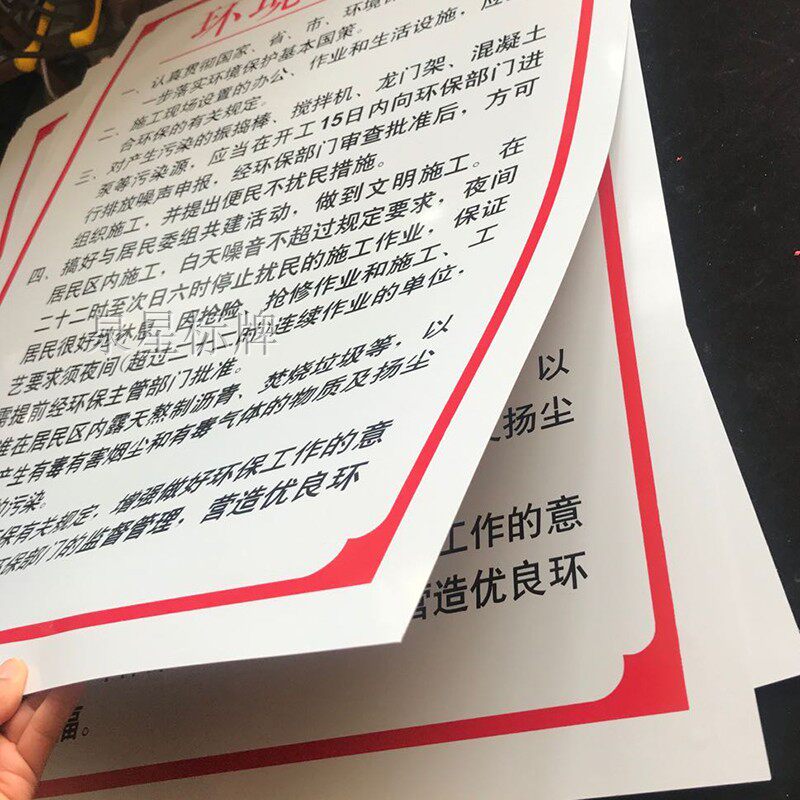 环境
一、认真贯彻国家、省、市、环境保
一步落实环境保护基本国策。
二、施工现场设置的办公、作业和生活设施，应
合环保的有关规定。
三、对产生污染的振捣棒、搅拌机、龙门架、混凝土
泵等污染源，应当在开工15日内向环保部门进
行排放噪声申报，经环保部门审查批准后，方可
组织施工，并提出便民不扰民措施。
四、搞好与居民委组共建活动，做到文明施工。在
居民区内施工，白天噪音不超过规定要求，夜间
二十二时至次日六时停止扰民的施工作业，保证
居民很好地休息，因抢险，抢修作业和施工、工
艺要求须夜间(超过二 时)连续作业的单位，
需提前经环保主管部门批准。
准在居民区内露天熬制沥青、焚烧垃圾等，以
产生有毒有害烟尘和有毒气体的物质及扬尘
的污染。
保有关规定，增强做好环保工作的意
环保部门的监督管理，营造优良环
星标牌
以
及扬尘
工作的意
营造优良环